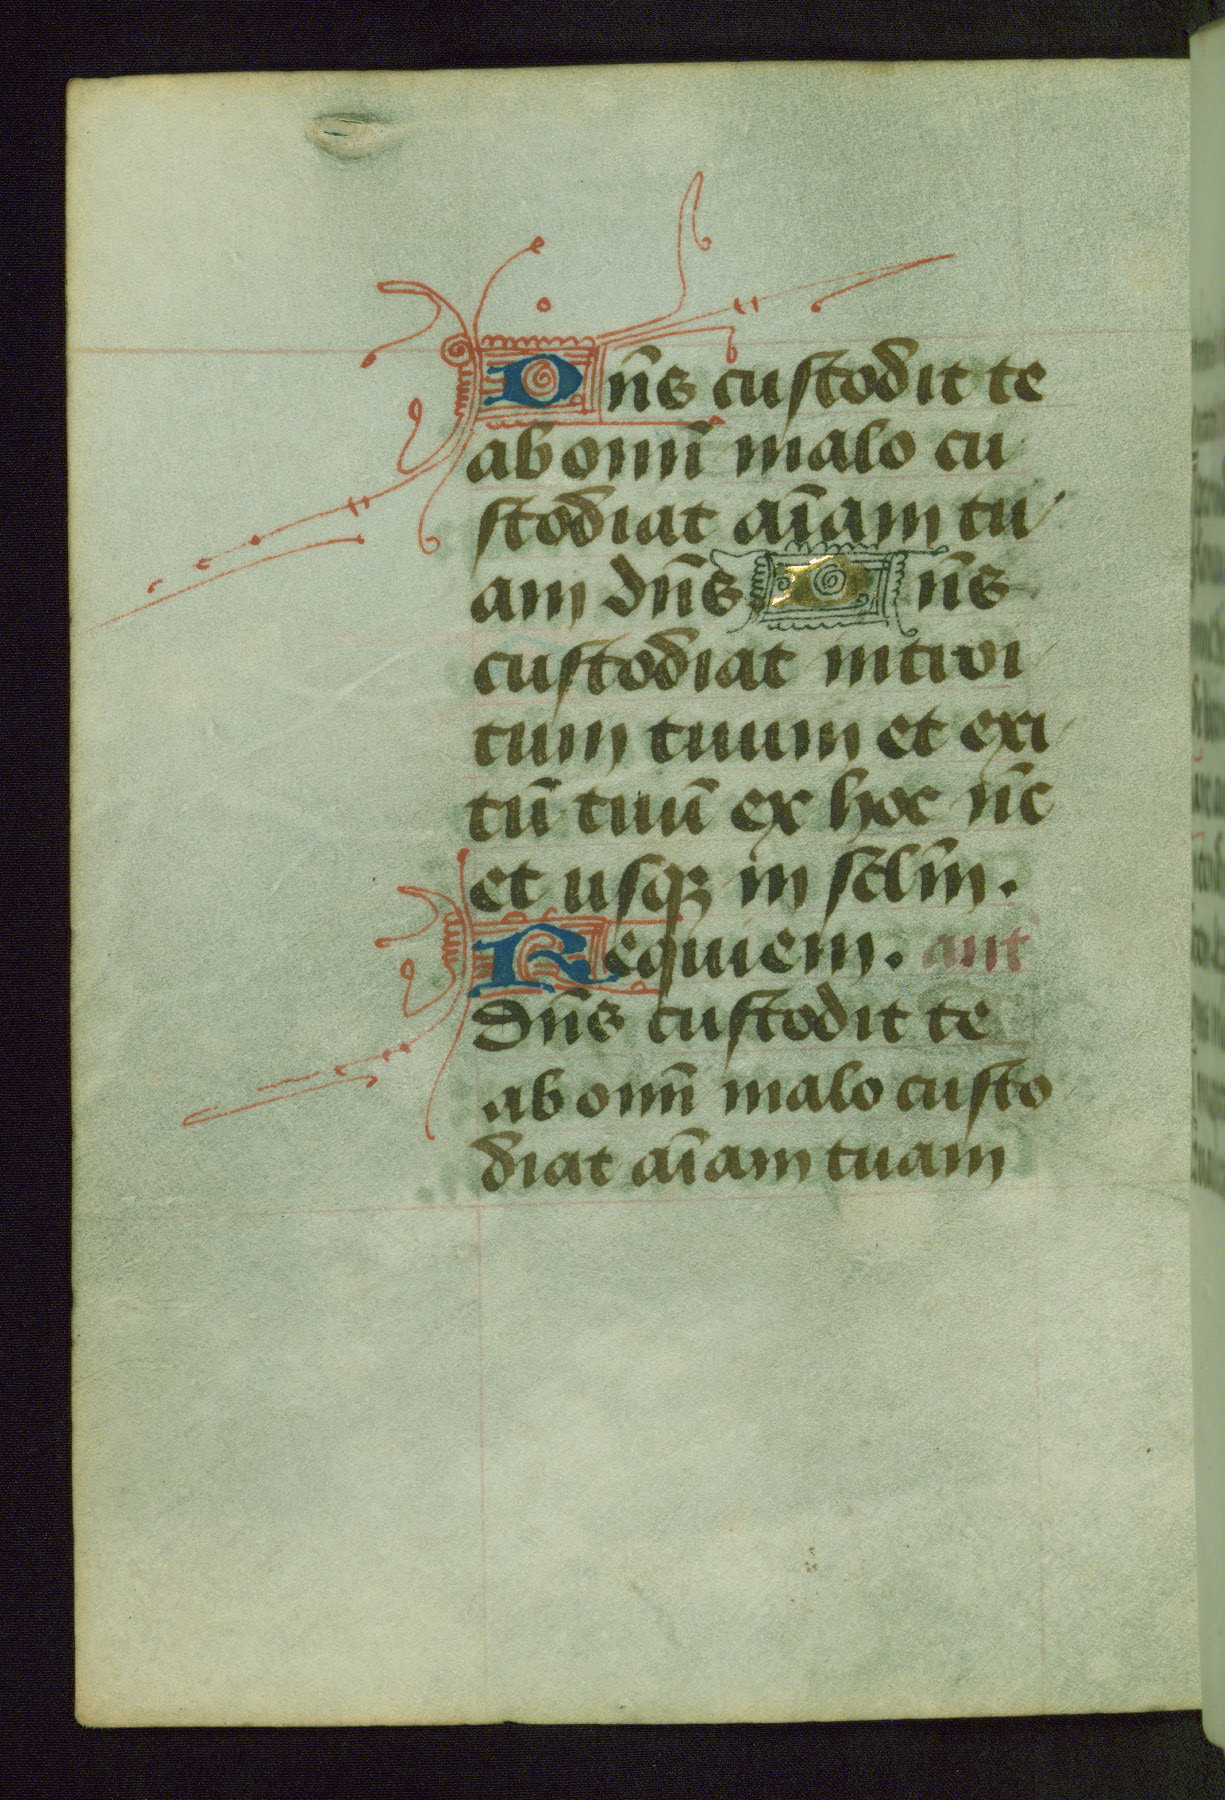 Dn̄s custodit te
ab omn̄i malo cu
stodiat aīam tu
am dn̄s Dn̄s
custodiat introi
tum tuum et exi
tū tuū ex hoc nc̄
et usqꝫ in sc̄lm̄.
Requiem. ant
Dn̄s custodit te
ab omn̄i malo custo
diat aīam tuam